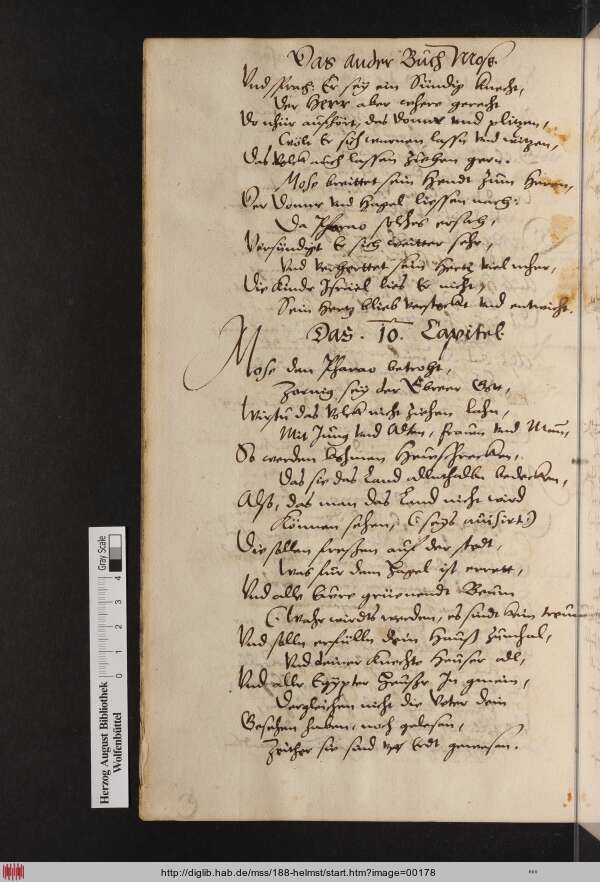 Das ander Buch Mose
Und sprach: Er sey ein Sündig knecht,
Der Herr aber wehere gerecht
Das nhur auffhört, des donner und plitzen,
Wöle Er sich lassn und
Das Volck auch lassen ziehen gern.
Mose breittet sein Hendt zum Herren,
Der Donner und Hagel liessen nach:
Da Pharao solches ersach,
Versündigt Er sich weitter sehr,
Und verherttet sein Hertz viel mher,
Die kinder Israel lies Er nicht,
Sein Hertz blieb verstockt und entwicht.
Das . 10. Capitel
Mose dem Pharao betroht,
Zornig sey der Ebreer Gott,
Wirstu das Volck nicht ziehen lahn,
Mit Jung und Alten, frauen und Mann,
So werden khomen Heuschrecken,
Das sie das Land allenthalben bedecken,
Also, das man des Land nicht wird
Können sehen,
Die sollen fressen auff der stedt,
Was für dem Hagel ist errett,
Und alle Eure grüenendt Beum
(: Wahr wirdts werden, es sindt kein treum
Und solln erfülln dein Hauß zumhal,
Und deiner knechte Heuser all,
Und aller Egypter Heuser In gmein,
Dergleichen nicht die Veter dein
Gesehen haben, noch gelesen,
Zeither sie sind uff Erdt gewesen.
Herzog August Bibliothek
Wolfenbüttel
0 1 2 3 4
Gray Scale
http://diglib.hab.de/mss/188-helmst/start.htm?image=00178